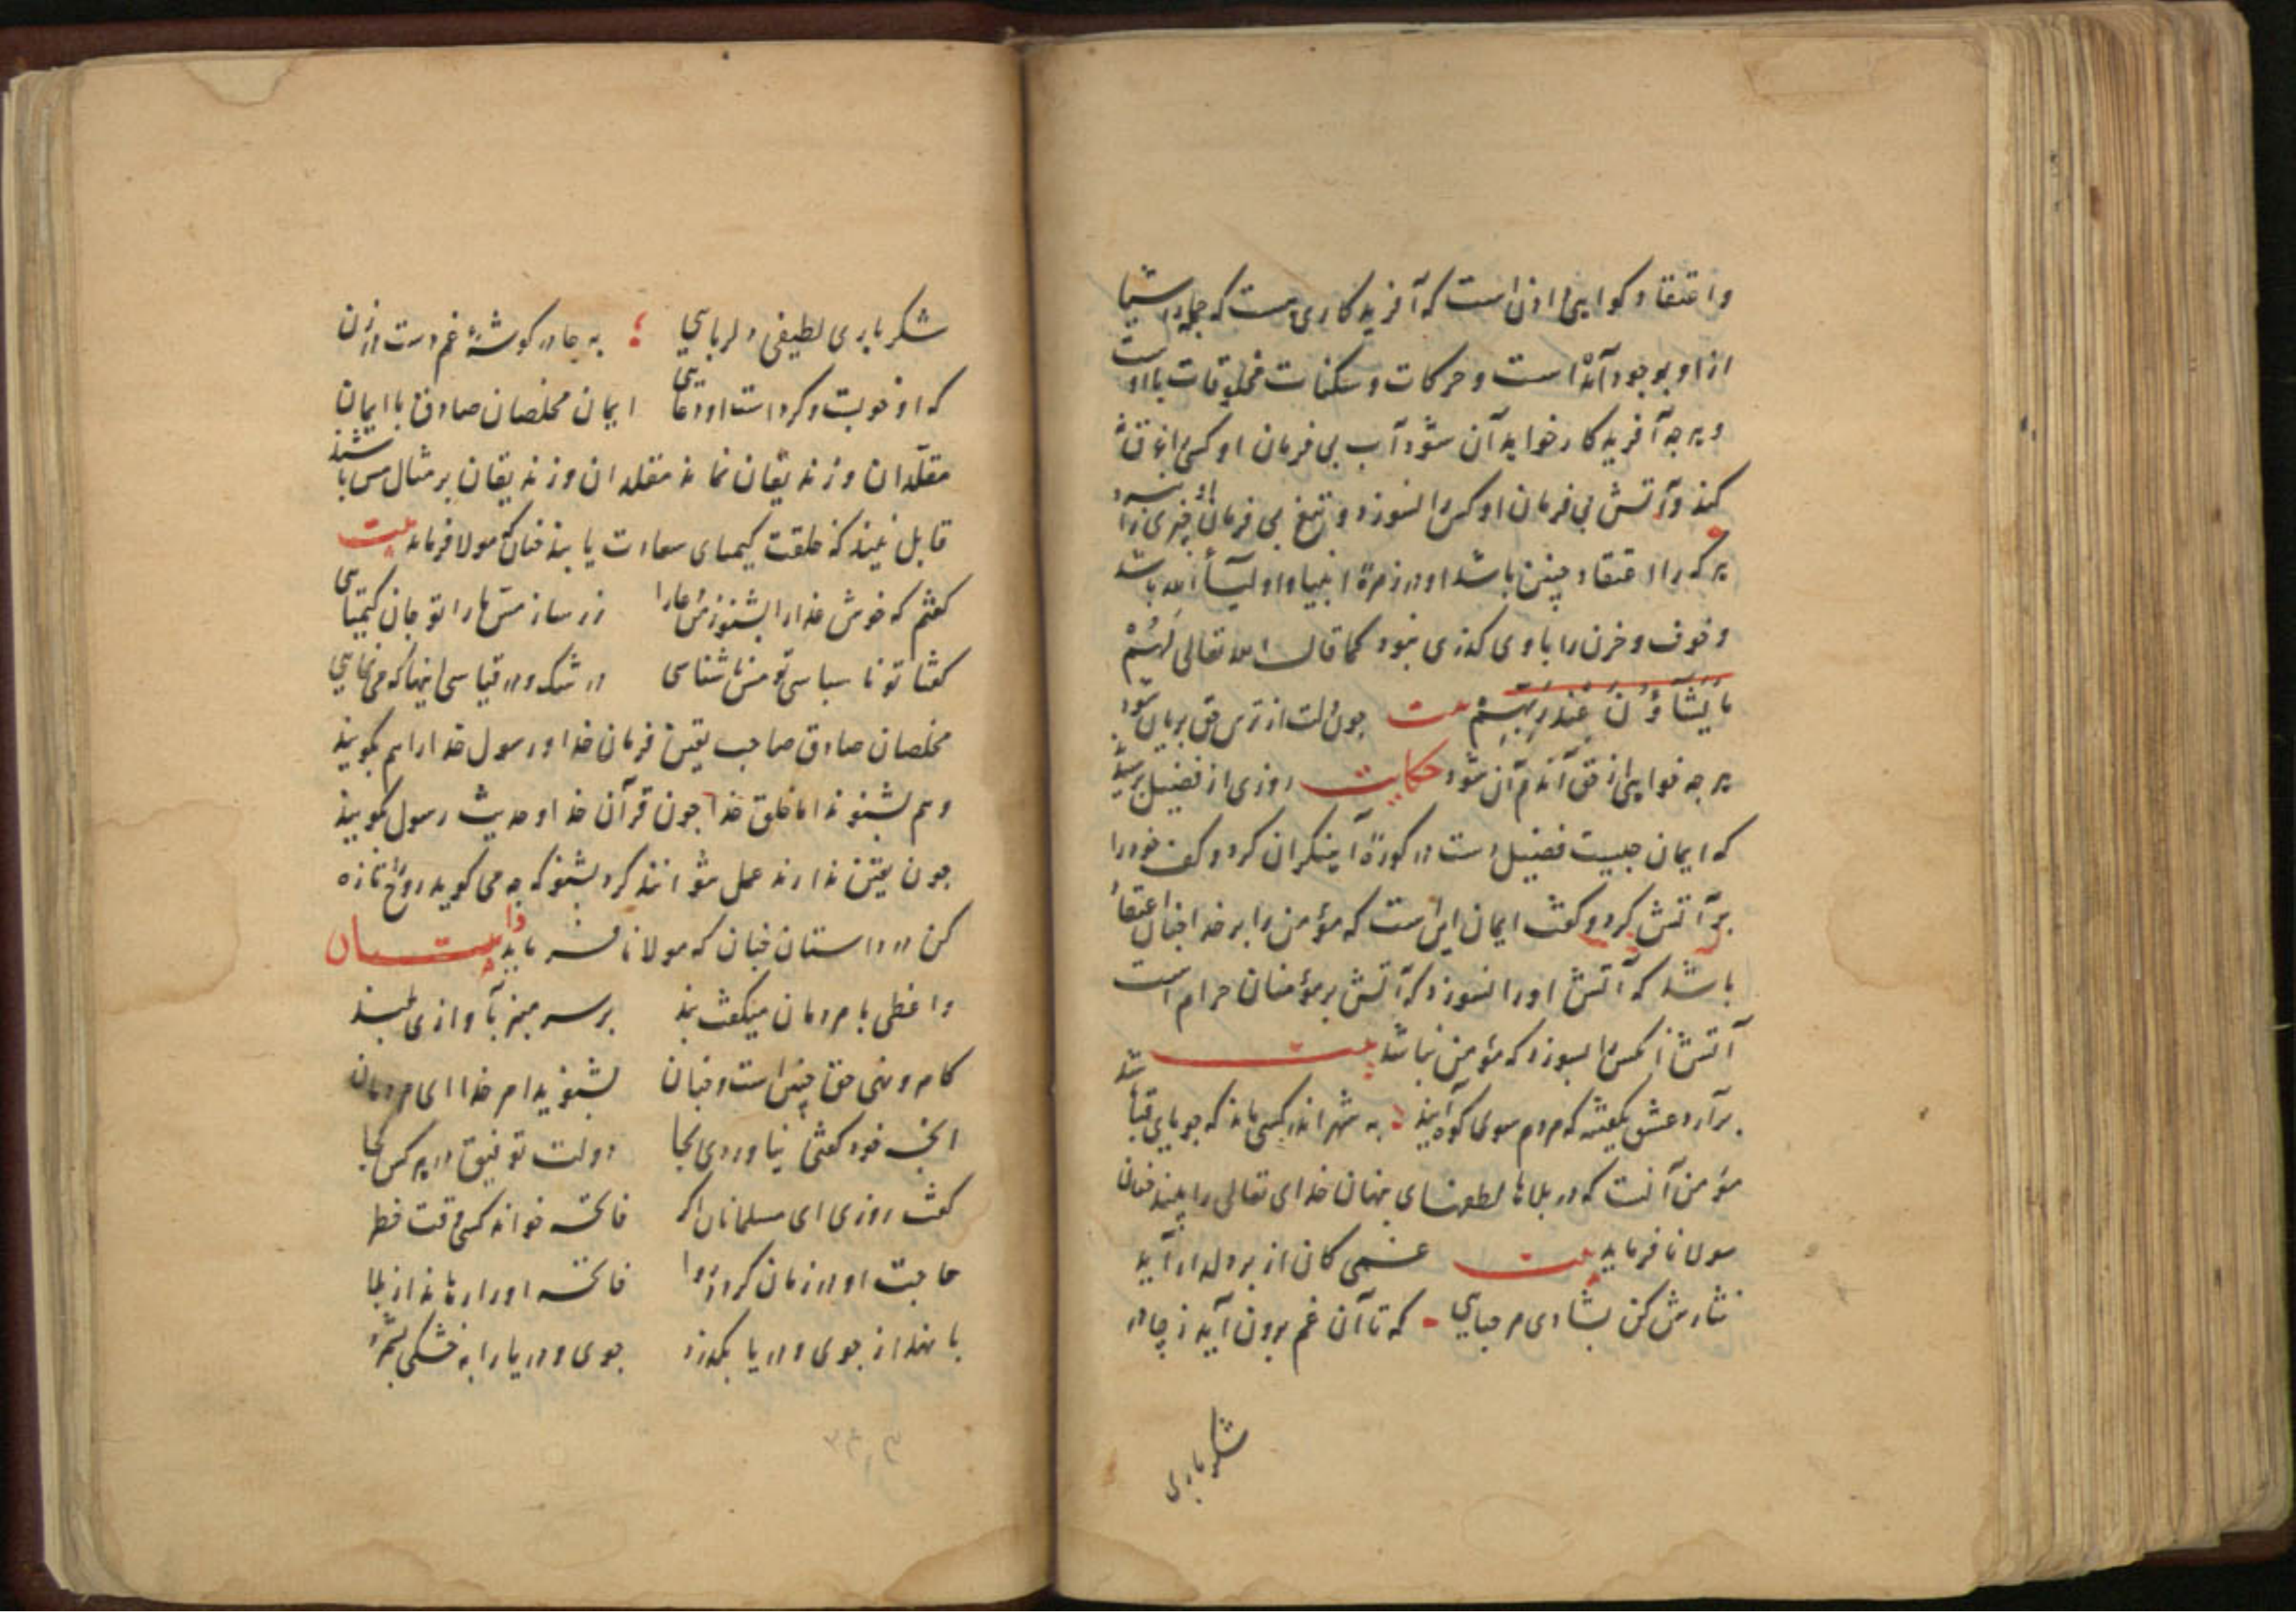 و اعتقاد کواهی دادن است که آفریدکاری هست که جمله اشیا
از او بوجود آمده است و حرکات و سکنات مخلوقات با اوست
و هرچه آفریدکار خواهد آن شود آب بی فرمان او کسی را غرق
کند و آتش بی فرمان او کس را نسوزد و تیغ بی فرمان چیزی را نبرد
هرکه را اعتقاد چنین باشد او در زمرۀ انبیا و اولیآء الله باشد
و خوف و حزن را با وی کذری نبود کما قال الله تعالی لَهُمْ
ما یَشَآؤُنَ عِنْدَ رَبِّهِمْ بیت چون دلت از ترس حق بریان شود
هرچه خواهی از حق آندم آن شود حکایت روزی از فضیل پرسید
که ایمان چیست فضیل دست در کورۀ آهنکران کرد و کف خود را
پر آتش کرد و کفت ایمان این است که مؤمن را بر خدا چنان اعتقاد
باشد که آتش او را نسوزد که آتش بر مؤمنان حرام است
آتش آنکس را بسوزد که مؤمن نباشد بیت
برآرد عشق یک که مردم سوی کوه آیند به شهر اندر کسی ماند که جویای باشد
مؤمن آنست که در بلاها لطفهای پنهان خدای تعالی را بیند چنان
مولانا فرماید بیت غمی کان از بر دلدار آید
نثارش کن بشادی مرحبایی که تا آن غم برون آید ز چادر
شکرباری
شکرباری لطیفی دلربایی به چادر کوشۀ غم دست در زن
که او خوبست و کردست او دغایی ایمان مخلصان صادق با ایمان
مقلّدان و زندیقان نماند مقلدان و زندیقان بر مثال مس باشند
قابل نیند که خلقت کیمیای سعادت یابند چنانک مولا فرماید بیت
کفتم که خوش عذارا بشنو ز من زر ساز مسّ ما را تو جان کیمیایی
کفتا تو ناسپاسی تو مسّ ناشناسی در شک و در قیاسی اینها که می نمایی
مخلصان صادق صاحب یقین فرمان خدا و رسول خدا را هم بکویند
و هم بشنوند اما خلق خدا چون قرآن خدا و حدیث رسول کویند
چون یقین ندارند عمل نتوانند کرد بشنو که چه می کوید روح تازه
کن در داستان چنان که مولانا فرماید داستان
واعظی با مردمان میکفت پند بر سر منبر بآوازی بلند
کامر و نهی حق چنین است و چنان بشنوید امر خدا ای مردمان
انچه خود کفتی نیاوردی بجا دولت توفیق در هر کس کجا
کفت روزی ای مسلمانان اکر فاتحه خواند کسی وقت خطر
حاجت او در زمان کردد روا فاتحه او را رهاند از بلا
با نهد از جوی و دریا بکذرد جوی و دریا را به خشکی بشمرد